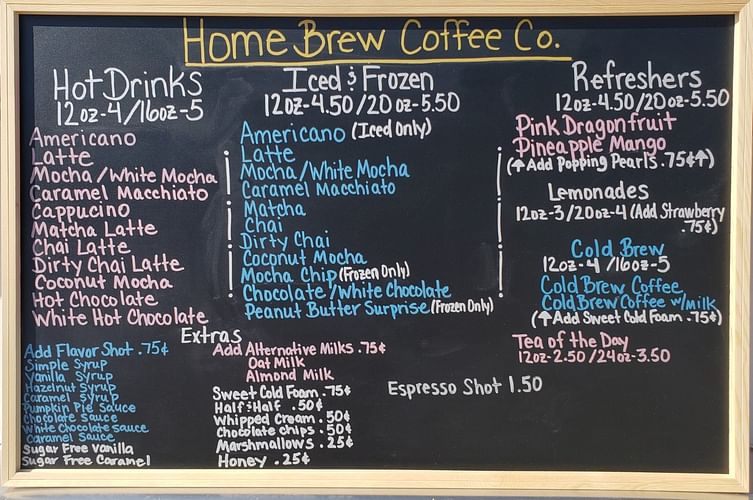 Home Brew Coffee Co.
Hot Drinks
12oz-4/16oz-5
Americano
Latte
Mocha/White Mocha
Caramel Macchiato
Cappucino
Matcha Latte
Chai Latte
Dirty Chai Latte
Coconut Mocha
Hot Chocolate
White Hot Chocolate
Iced & Frozen
12oz-4.50/20oz-5.50
Americano (Iced Only)
Latte
Mocha/White Mocha
Caramel Macchiato
Matcha
Chai
Dirty Chai
Coconut Mocha
Mocha Chip (Frozen Only)
Chocolate/White Chocolate
Peanut Butter Surprise (Frozen Only)
Refreshers
12oz-4.50/20oz-5.50
Pink Dragonfruit
Pineapple Mango
(↑Add Popping Pearls .75¢↑)
Lemonades
12oz-3/20oz-4 (Add Strawberry
.75¢)
Cold Brew
12oz-4/16oz-5
Cold Brew Coffee
Cold Brew Coffee w/milk
(↑Add Sweet Cold Foam .75¢)
Tea of the Day
12oz-2.50/24oz-3.50
Extras
Add Flavor Shot .75¢
Simple Syrup
Vanilla Syrup
Hazelnut Syrup
Caramel Syrup
Pumpkin Pie Sauce
Chocolate Sauce
White Chocolate Sauce
Caramel Sauce
Sugar Free Vanilla
Sugar Free Caramel
Add Alternative Milks .75¢
Oat Milk
Almond Milk
Sweet Cold Foam .75¢
Half & Half .50¢
Whipped Cream .50¢
Chocolate Chips .50¢
Marshmallows .25¢
Honey .25¢
Espresso Shot 1.50